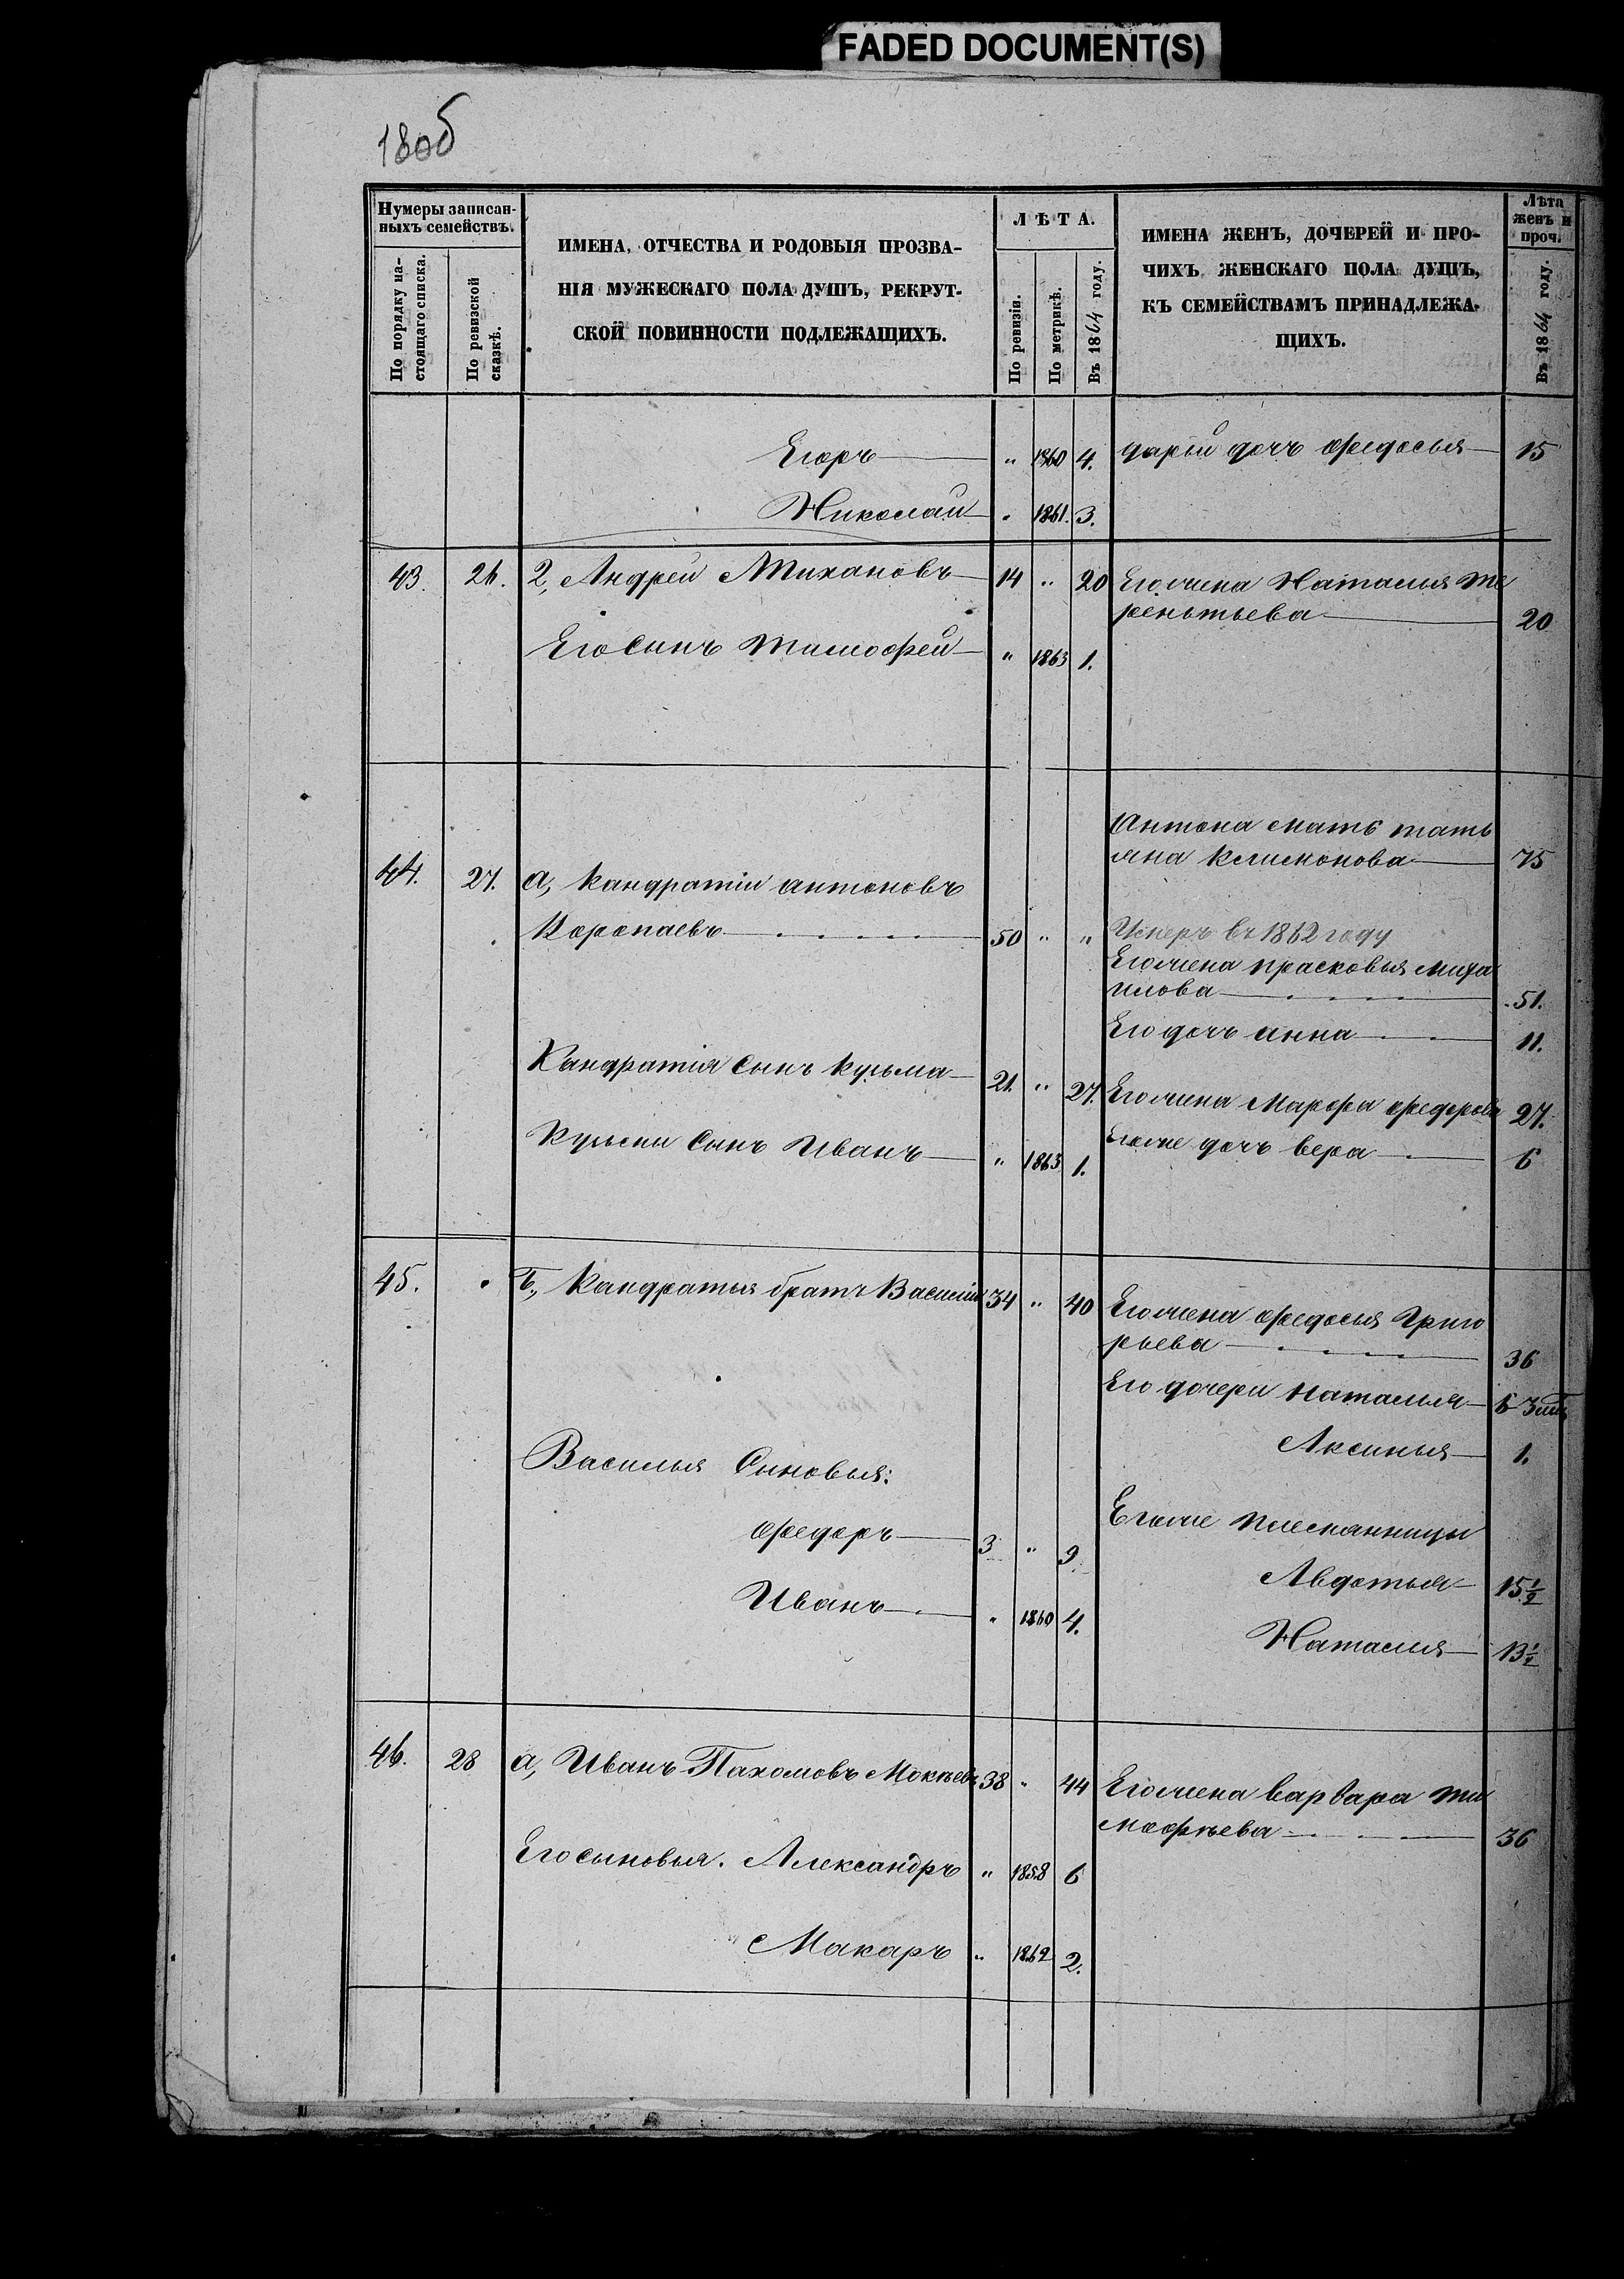 FADED DOCUMENT(S)
180об
Нумеры записан-
ныхъ семействъ.
По порядку на-
стоящаго списка.
По ревизской
сказкѣ.
ИМЕНА, ОТЧЕСТВА И РОДОВЫЯ ПРОЗВА-
НІЯ МУЖЕСКАГО ПОЛА ДУШЪ, РЕКРУТ-
СКОЙ ПОВИННОСТИ ПОДЛЕЖАЩИХЪ.
ЛѢТА.
По ревизіи.
По метрикѣ.
Въ 1864 году.
ИМЕНА ЖЕНЪ, ДОЧЕРЕЙ И ПРО-
ЧИХЪ ЖЕНСКАГО ПОЛА ДУШЪ,
КЪ СЕМЕЙСТВАМЪ ПРИНАДЛЕЖА-
ЩИХЪ.
Лѣта
женъ и
проч.
Въ 1864 году.
Егоръ " 1860 4. дарьи дочь Федосья 15
Николай " 1861. 3.
43. 26. 2, Андрей 14 " 20 Его жена Наталья Те
рентьева 20
Его Сынъ Тимофей " 1863 1.
Антона мать тать
яна 75
44. 27. а, Кандратій антоновъ
Коропаевъ 50 " " Умеръ въ 1862 году
Его жена прасковья Миха
илова 51.
Его дочь анна 11.
Кандратія Сынъ Кузьма 21. " 27. Его жена Марфа Федорова 27.
Кузьмы Сынъ Иванъ " 1863 1. Егоже дочь вера 6
45. Б, Кандратья братъ Василій 34 " 40 Его жена Федосья Григо
рьева 36
Его дочери Наталья 6
Аксинья 1.
Василья Сыновья:
Федоръ 3 " 9 Егоже племянницы
Авдотья 15½
Иванъ " 1860 4.
Наталья 13½
46. 28 а, Иванъ Пахомовъ 38 " 44 Его жена варвара ти
мофѣева 36
Его сыновья. Александръ " 1858 6
Макаръ " 1862 2.